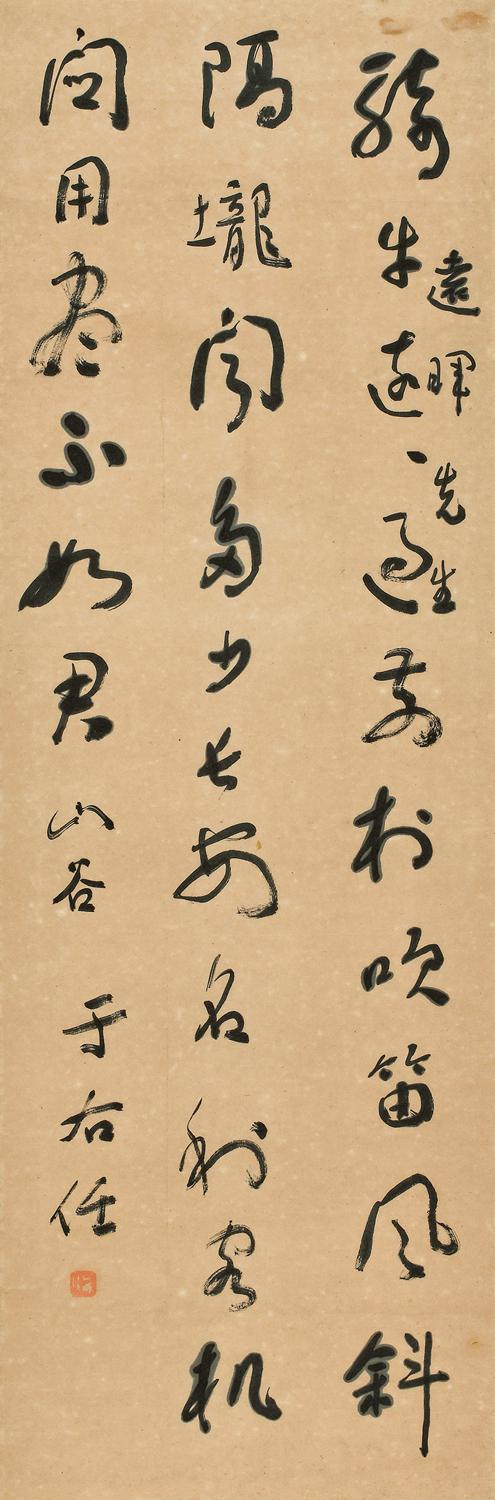 騎牛遠々過前村吹笛風斜
遠暉先生
隔壠聞多少長安名利客机
関用盡不如君 山谷 于右任